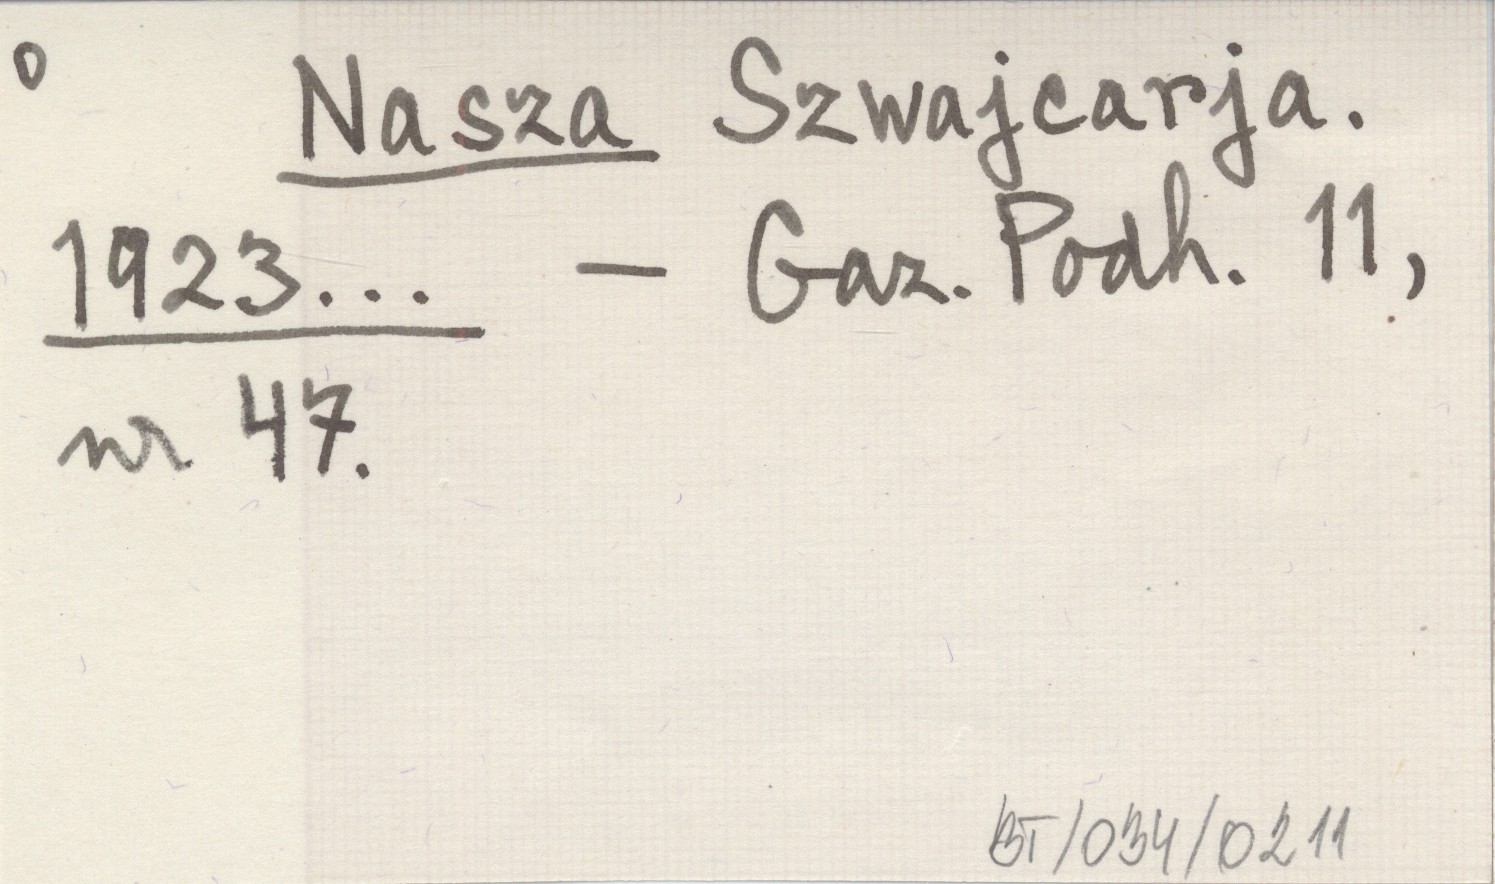 o
Nasza Szwajcarja.
1923... — Gaz. Podh. 11,
nr 47.
BT/034/0211